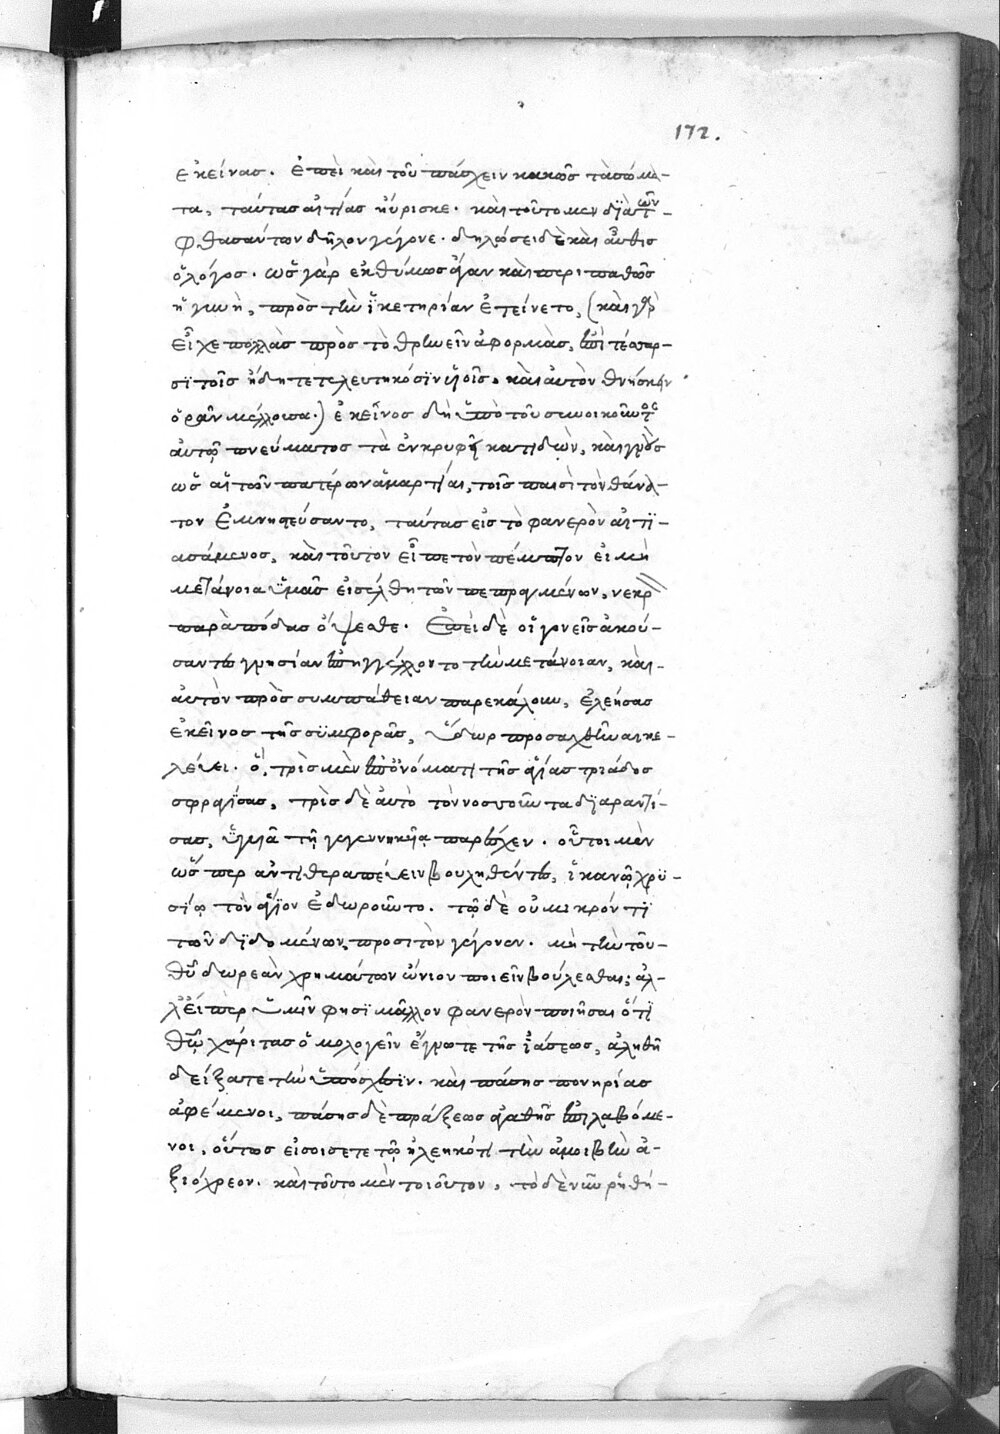 172.
ἐκείνας. ἐπεὶ καὶ τοῦ πάσχειν κακῶς τὰ σώμα-
τα, ταύτας αἰτίας ηὕρισκε. καὶ τοῦτο μὲν διὰ τῶν
φθασάντων δῆλον γέγονε. δηλώσει δὲ καὶ αὖθις
ὁ λόγος. ὡς γὰρ ἐκθύμως ἄγαν καὶ περιπαθῶς
ἡ γυνὴ, πρὸς τὴν ἱκετηρίαν ἐτείνετο, (καὶ γὰρ
εἶχε πολλὰς πρὸς τὸ θρηνεῖν ἀφορμὰς, ἐπὶ τέσσαρ-
σι τοῖς ἤδη τετελευτηκόσιν υἱοῖς. καὶ αὐτὸν θνήσκειν
ὁρᾶν μέλλουσα.) ἐκεῖνος δὴ ὑπὸ τοῦ συνοικοῦντος
αὐτῷ πνεύματος τὰ ἐν κρυφῇ κατιδὼν, καὶ γνοὺς
ὡς αἱ τῶν πατέρων ἁμαρτίαι, τοῖς παισὶ τὸν θάνα-
τον ἐμνηστεύσαντο, ταύτας εἰς τὸ φανερὸν αἰτι-
ασάμενος, καὶ τοῦτον εἶπε τὸν πέμπτον εἰ μὴ
μετάνοια ὑμᾶς εἰσέλθῃ τῶν πεπραγμένων, νεκρὸν
παρὰ πόδας ὄψεσθε. Ἐπεὶ δὲ οἱ γονεῖς ἀκού-
σαντες γνησίαν ἐπηγγέλλοντο τὴν μετάνοιαν, καὶ
αὐτὸν πρὸς συμπάθειαν παρεκάλουν, ἐλεήσας
ἐκεῖνος τῆς συμφορᾶς, ὕδωρ προσαχθῆναι κε-
λεύει. ὃ, τρὶς μὲν ἐπ' ὀνόματι τῆς ἁγίας τριάδος
σφραγίσας, τρὶς δὲ αὐτὸ τὸν νοσοῦντα διαραντί-
σας, ὑγιᾶ τῇ γεγεννηκυίᾳ παρέσχεν. οὗτοι μὲν
ὥσπερ ἀντιθεραπεύειν βουληθέντες, ἱκανῷ χρυ-
σίῳ τὸν ἅγιον ἐδωροῦντο. τῷ δὲ οὐ μικρόν τι
τῶν διδομένων, προσιτὸν γέγονεν. μὴ τὴν τοῦ
θυ δωρεὰν χρημάτων ὤνιον ποιεῖν βούλεσθαι; ἀλ-
λ' εἴπερ ὑμῖν φησὶ μᾶλλον φανερὸν ποιῆσαι ὅτι
θῷ χάριτας ὁμολογεῖν ἔγνωτε τῆς ἰάσεως, ἀληθῆ
δείξατε τὴν ὑπόσχεσιν. καὶ πάσης πονηρίας
ἀφέμενοι, πάσης δὲ πράξεως ἀγαθῆς ἐπιλαβόμε-
νοι, οὕτως εἰσοίσετε τῷ ἠλεηκότι τὴν ἀμοιβὴν ἀ-
ξιόχρεον. καὶ τοῦτο μὲν τοιοῦτον, τὸ δὲ νῦν ῥηθη-